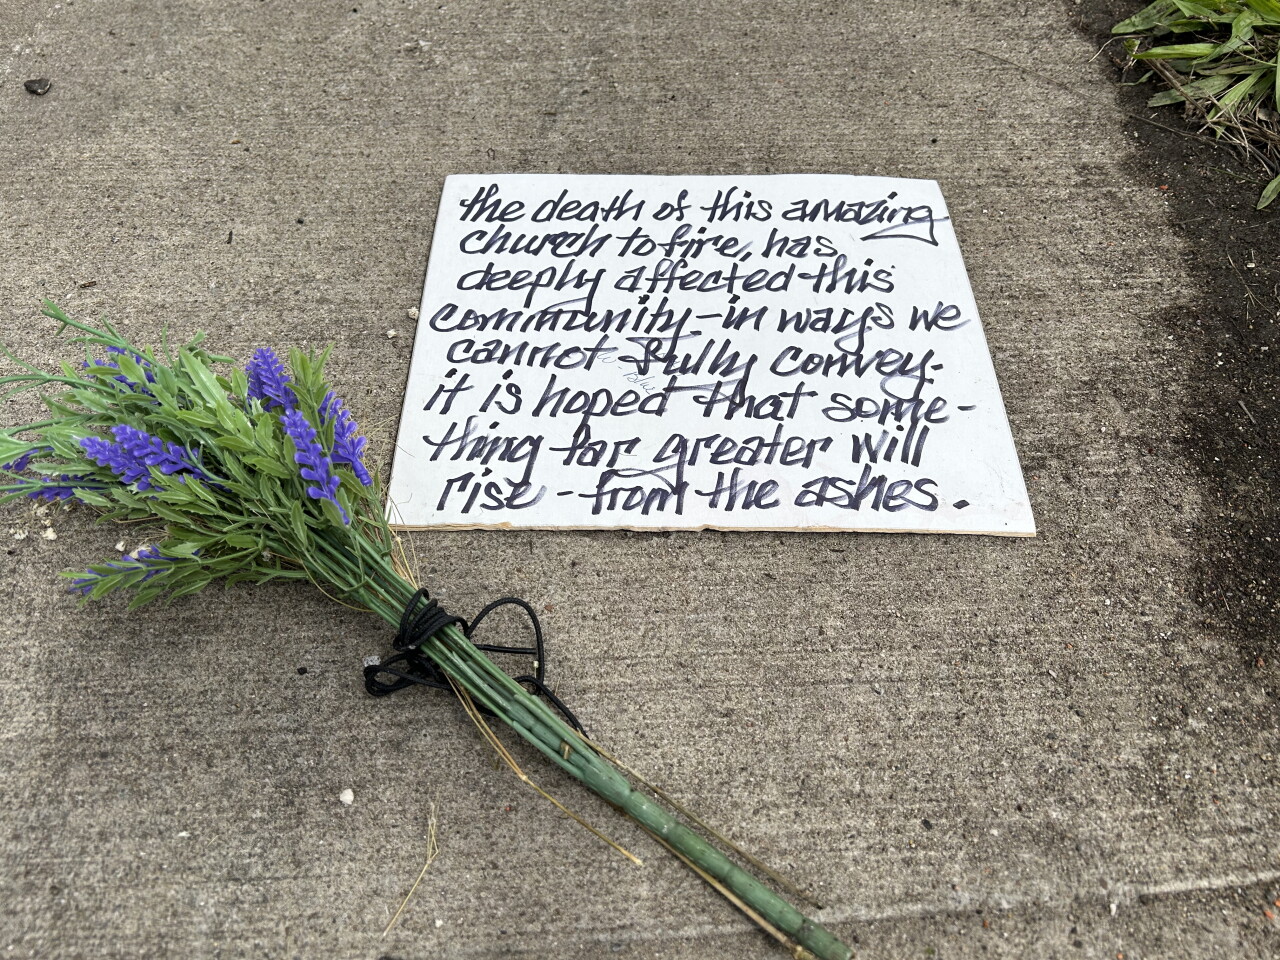 the death of this amazing
church to fire, has
deeply affected this
community - in ways we
cannot fully convey -
it is hoped that some -
thing far greater will
rise - from the ashes.